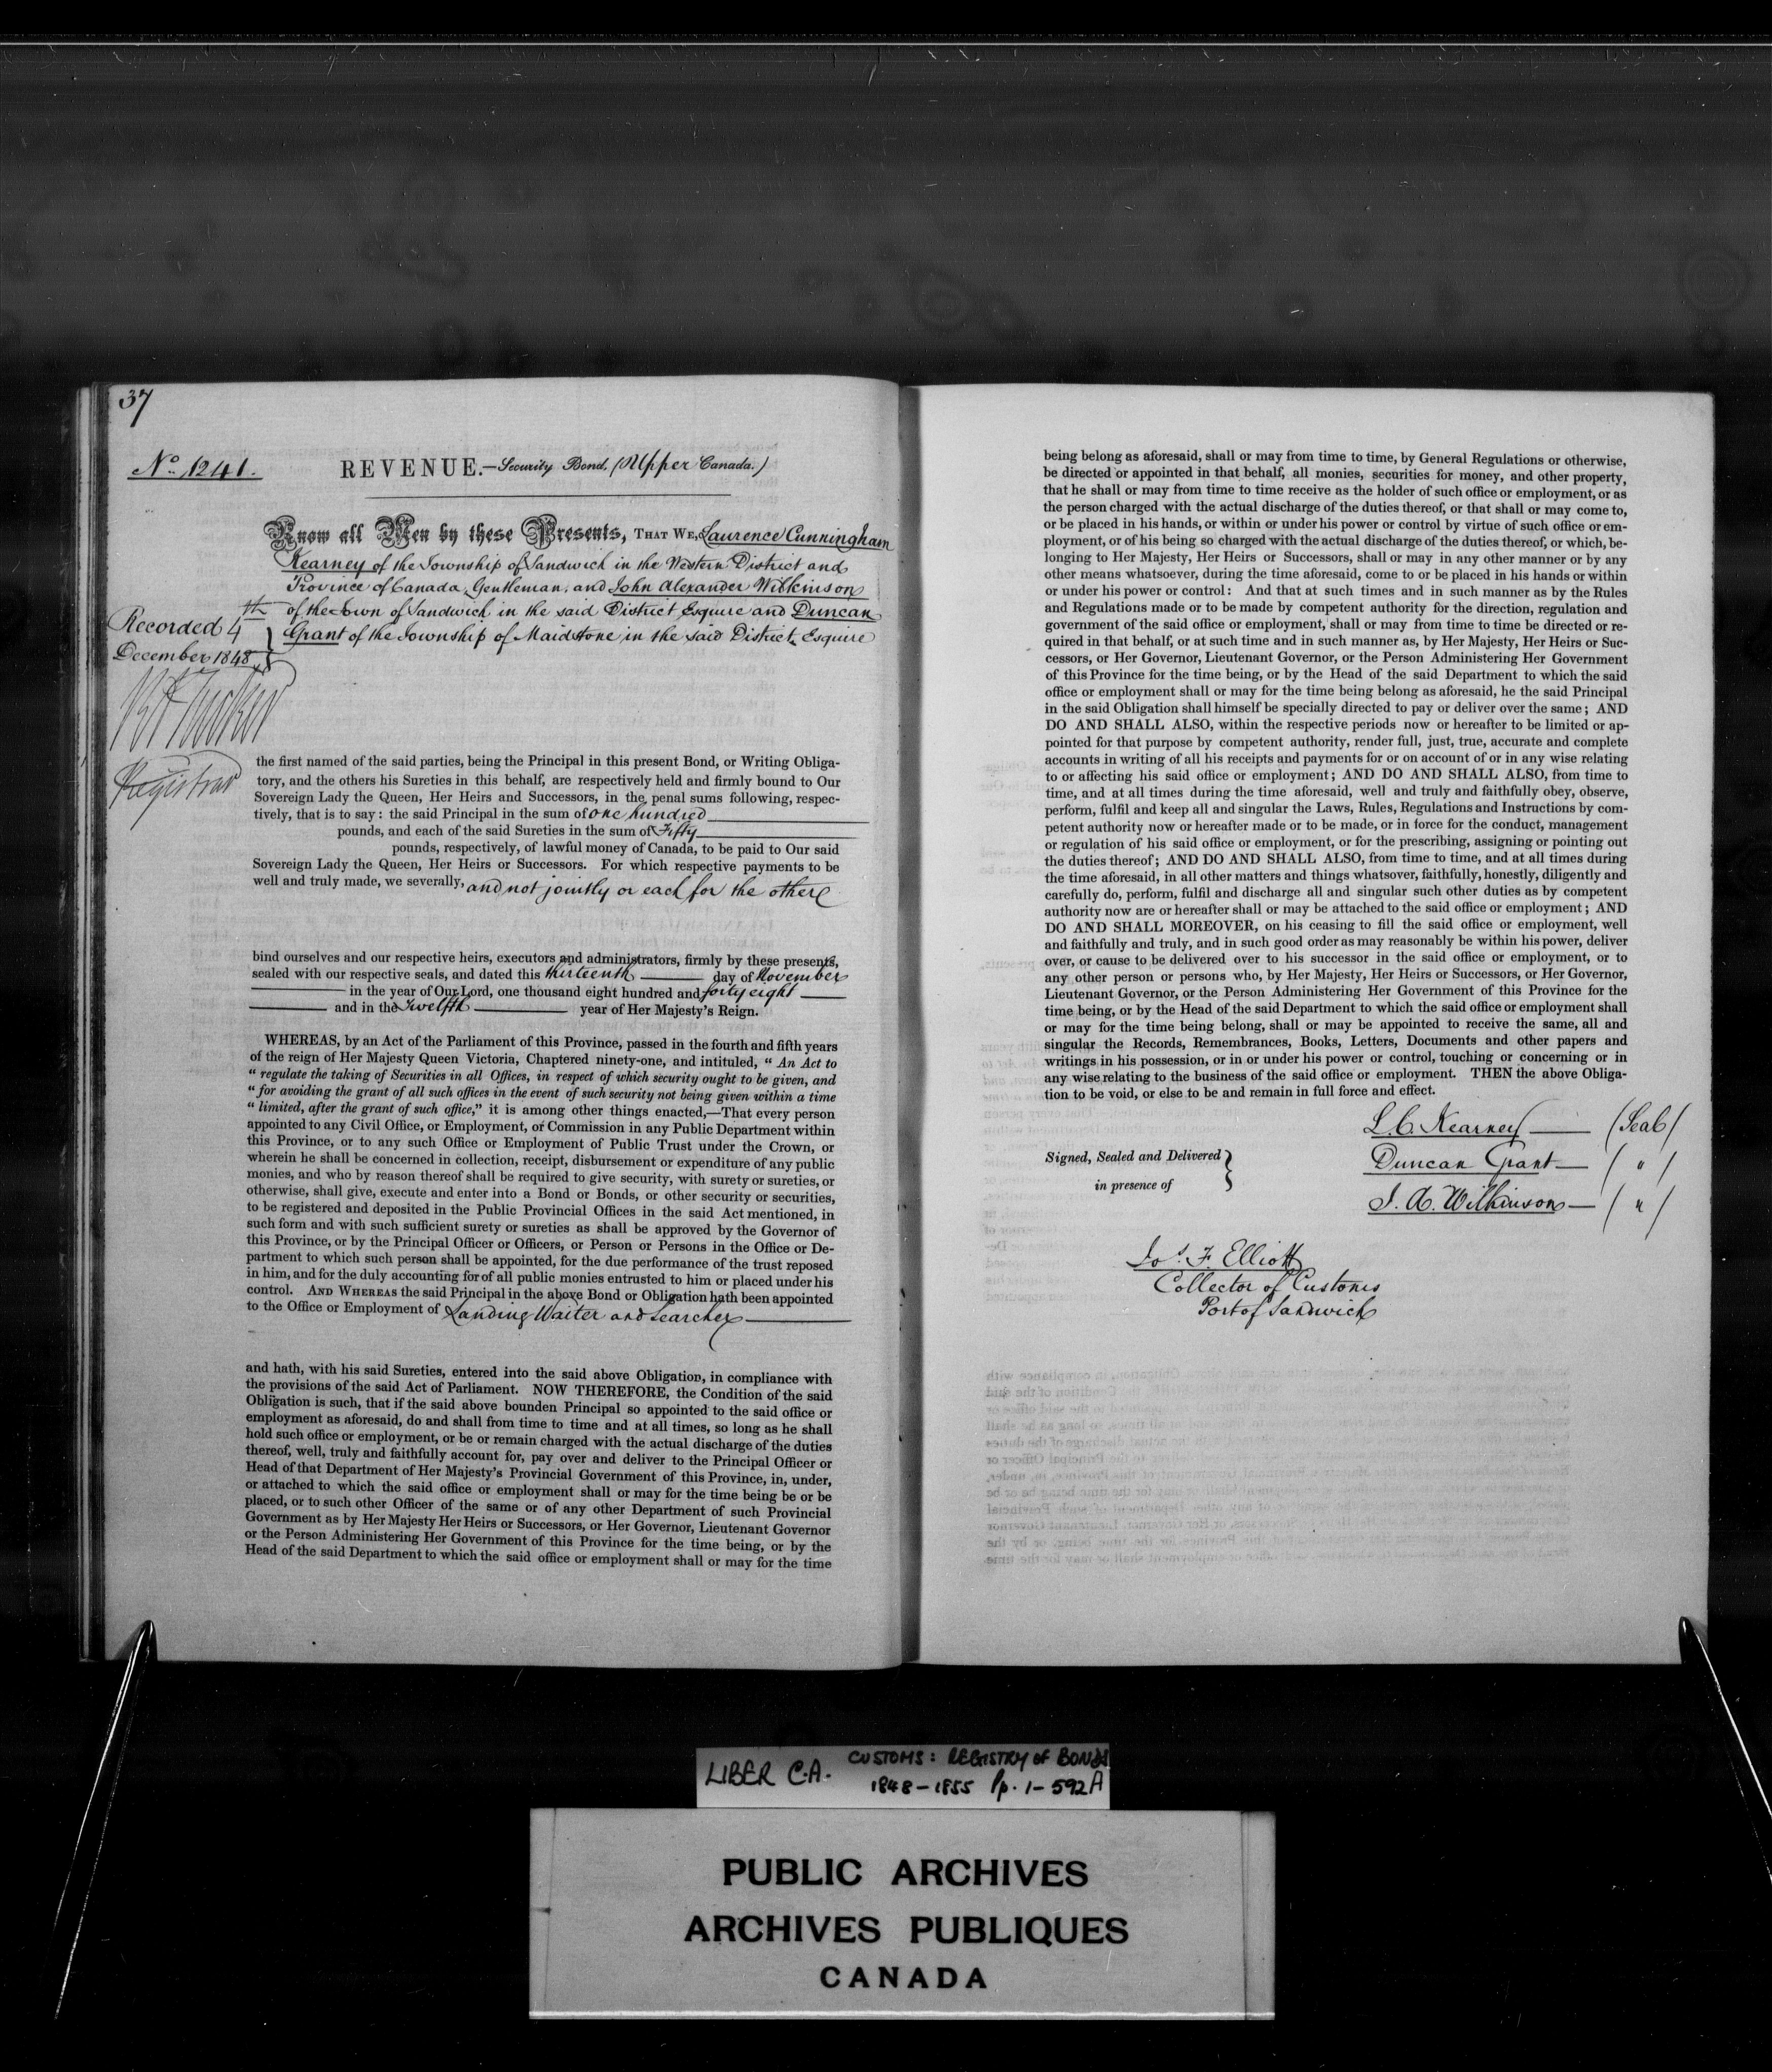 37
No. 1241.
REVENUE.—Security Bond. (Upper Canada.)
Know all Men by these Presents, THAT WE, Laurence Cunningham
Kearney of the Township of Sandwich in the Western District and
Province of Canada, Gentleman, and John Alexander Wilkinson
of the Town of Sandwich in the said District Esquire and Duncan
Grant of the Township of Maidstone in the said District Esquire
Recorded 4th
December 1848
Registrar
the first named of the said parties, being the Principal in this present Bond, or Writing Obliga-
tory, and the others his Sureties in this behalf, are respectively held and firmly bound to Our
Sovereign Lady the Queen, Her Heirs and Successors, in the penal sums following, respec-
tively, that is to say: the said Principal in the sum of one hundred
pounds, and each of the said Sureties in the sum of Fifty
pounds, respectively, of lawful money of Canada, to be paid to Our said
Sovereign Lady the Queen, Her Heirs or Successors. For which respective payments to be
well and truly made, we severally, and not jointly or each for the other
bind ourselves and our respective heirs, executors and administrators, firmly by these presents,
sealed with our respective seals, and dated this thirteenth day of November
in the year of Our Lord, one thousand eight hundred and forty eight
and in the Twelfth year of Her Majesty's Reign.
WHEREAS, by an Act of the Parliament of this Province, passed in the fourth and fifth years
of the reign of Her Majesty Queen Victoria, Chaptered ninety-one, and intituled, " An Act to
" regulate the taking of Securities in all Offices, in respect of which security ought to be given, and
" for avoiding the grant of all such offices in the event of such security not being given within a time
" limited, after the grant of such office," it is among other things enacted,—That every person
appointed to any Civil Office, or Employment, or Commission in any Public Department within
this Province, or to any such Office or Employment of Public Trust under the Crown, or
wherein he shall be concerned in collection, receipt, disbursement or expenditure of any public
monies, and who by reason thereof shall be required to give security, with surety or sureties, or
otherwise, shall give, execute and enter into a Bond or Bonds, or other security or securities,
to be registered and deposited in the Public Provincial Offices in the said Act mentioned, in
such form and with such sufficient surety or sureties as shall be approved by the Governor of
this Province, or by the Principal Officer or Officers, or Person or Persons in the Office or De-
partment to which such person shall be appointed, for the due performance of the trust reposed
in him, and for the duly accounting for of all public monies entrusted to him or placed under his
control. AND WHEREAS the said Principal in the above Bond or Obligation hath been appointed
to the Office or Employment of Landing Waiter and Searcher
and hath, with his said Sureties, entered into the said above Obligation, in compliance with
the provisions of the said Act of Parliament. NOW THEREFORE, the Condition of the said
Obligation is such, that if the said above bounden Principal so appointed to the said office or
employment as aforesaid, do and shall from time to time and at all times, so long as he shall
hold such office or employment, or be or remain charged with the actual discharge of the duties
thereof, well, truly and faithfully account for, pay over and deliver to the Principal Officer or
Head of that Department of Her Majesty's Provincial Government of this Province, in, under,
or attached to which the said office or employment shall or may for the time being be or be
placed, or to such other Officer of the same or of any other Department of such Provincial
Government as by Her Majesty Her Heirs or Successors, or Her Governor, Lieutenant Governor
or the Person Administering Her Government of this Province for the time being, or by the
Head of the said Department to which the said office or employment shall or may for the time
being belong as aforesaid, shall or may from time to time, by General Regulations or otherwise,
be directed or appointed in that behalf, all monies, securities for money, and other property,
that he shall or may from time to time receive as the holder of such office or employment, or as
the person charged with the actual discharge of the duties thereof, or that shall or may come to,
or be placed in his hands, or within or under his power or control by virtue of such office or em-
ployment, or of his being so charged with the actual discharge of the duties thereof, or which, be-
longing to Her Majesty, Her Heirs or Successors, shall or may in any other manner or by any
other means whatsoever, during the time aforesaid, come to or be placed in his hands or within
or under his power or control: And that at such times and in such manner as by the Rules
and Regulations made or to be made by competent authority for the direction, regulation and
government of the said office or employment, shall or may from time to time be directed or re-
quired in that behalf, or at such time and in such manner as, by Her Majesty, Her Heirs or Suc-
cessors, or Her Governor, Lieutenant Governor, or the Person Administering Her Government
of this Province for the time being, or by the Head of the said Department to which the said
office or employment shall or may for the time being belong as aforesaid, he the said Principal
in the said Obligation shall himself be specially directed to pay or deliver over the same; AND
DO AND SHALL ALSO, within the respective periods now or hereafter to be limited or ap-
pointed for that purpose by competent authority, render full, just, true, accurate and complete
accounts in writing of all his receipts and payments for or on account of or in any wise relating
to or affecting his said office or employment; AND DO AND SHALL ALSO, from time to
time, and at all times during the time aforesaid, well and truly and faithfully obey, observe,
perform, fulfil and keep all and singular the Laws, Rules, Regulations and Instructions by com-
petent authority now or hereafter made or to be made, or in force for the conduct, management
or regulation of his said office or employment, or for the prescribing, assigning or pointing out
the duties thereof; AND DO AND SHALL ALSO, from time to time, and at all times during
the time aforesaid, in all other matters and things whatsover, faithfully, honestly, diligently and
carefully do, perform, fulfil and discharge all and singular such other duties as by competent
authority now are or hereafter shall or may be attached to the said office or employment; AND
DO AND SHALL MOREOVER, on his ceasing to fill the said office or employment, well
and faithfully and truly, and in such good order as may reasonably be within his power, deliver
over, or cause to be delivered over to his successor in the said office or employment, or to
any other person or persons who, by Her Majesty, Her Heirs or Successors, or Her Governor,
Lieutenant Governor, or the Person Administering Her Government of this Province for the
time being, or by the Head of the said Department to which the said office or employment shall
or may for the time being belong, shall or may be appointed to receive the same, all and
singular the Records, Remembrances, Books, Letters, Documents and other papers and
writings in his possession, or in or under his power or control, touching or concerning or in
any wise relating to the business of the said office or employment. THEN the above Obliga-
tion to be void, or else to be and remain in full force and effect.
L. C. Kearney (Seal)
Signed, Sealed and Delivered
in presence of
Duncan Grant ( " )
J. A. Wilkinson ( " )
Jos. F. Elliott
Collector of Customs
Port of Sandwich
LIBER C.A. CUSTOMS: REGISTRY OF BONDS
1848-1855 Pp. 1-592A
PUBLIC ARCHIVES
ARCHIVES PUBLIQUES
CANADA